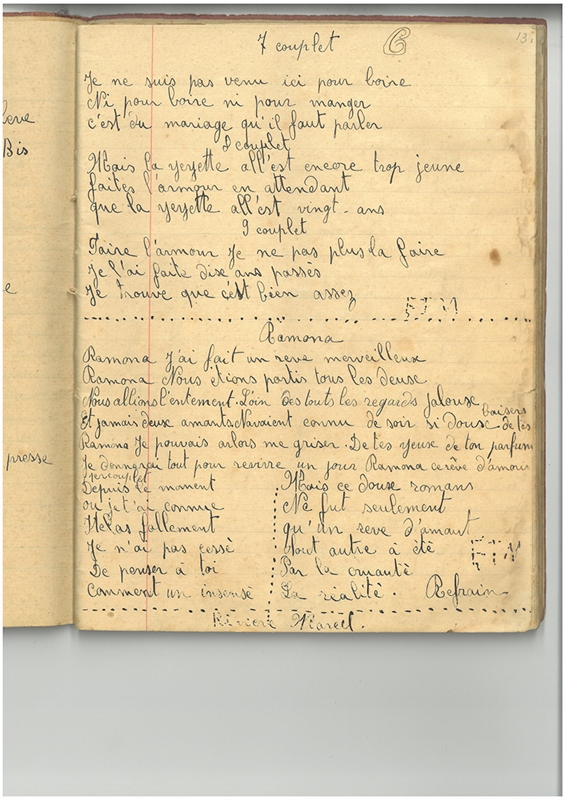 7 couplet
13.
Je ne suis pas venu ici pour boire
Ni pour boire ni pour manger
c'est du mariage qu'il faut parler
8 couplet
Mais la yeyette all'est encore trop jeune
faites l'armour en attendant
que la yeyette all'est vingt-ans
9 couplet
Faire l'armour Je ne pas plus la faire
Je l'ai faite dix ans passès
Je trouve que cést bien assez
FIN
Ramona
Ramona J'ai fait un reve merveilleux
Ramona Nous étions partis tous les deuse
Nous allions l'entement. Loin des touts les regards jalouse
Et jamais deuse amants Navaient connu de soir si douse
baisers
Ramona Je pouvais arlors me griser. De tes yeuse de ton parfum
Je donnerai tout pour revivre un jour Ramona ce rève d'amour
couplet
Depuis le moment
ou je t'ai connue
Hélas follement
Je n'ai pas cessè
De penser à toi
Comment un insensè
Mais ce douse romans
Ne fut seulement
qu'un reve d'amant
Tout autre à été
Par la cruautè
La rèalitè. Refrain
FIN
Riviere Marcel.
leve
Bis
e
presse